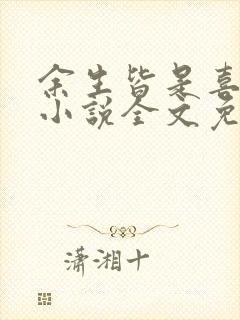 余生皆是喜
小說全文免
瀟湘十